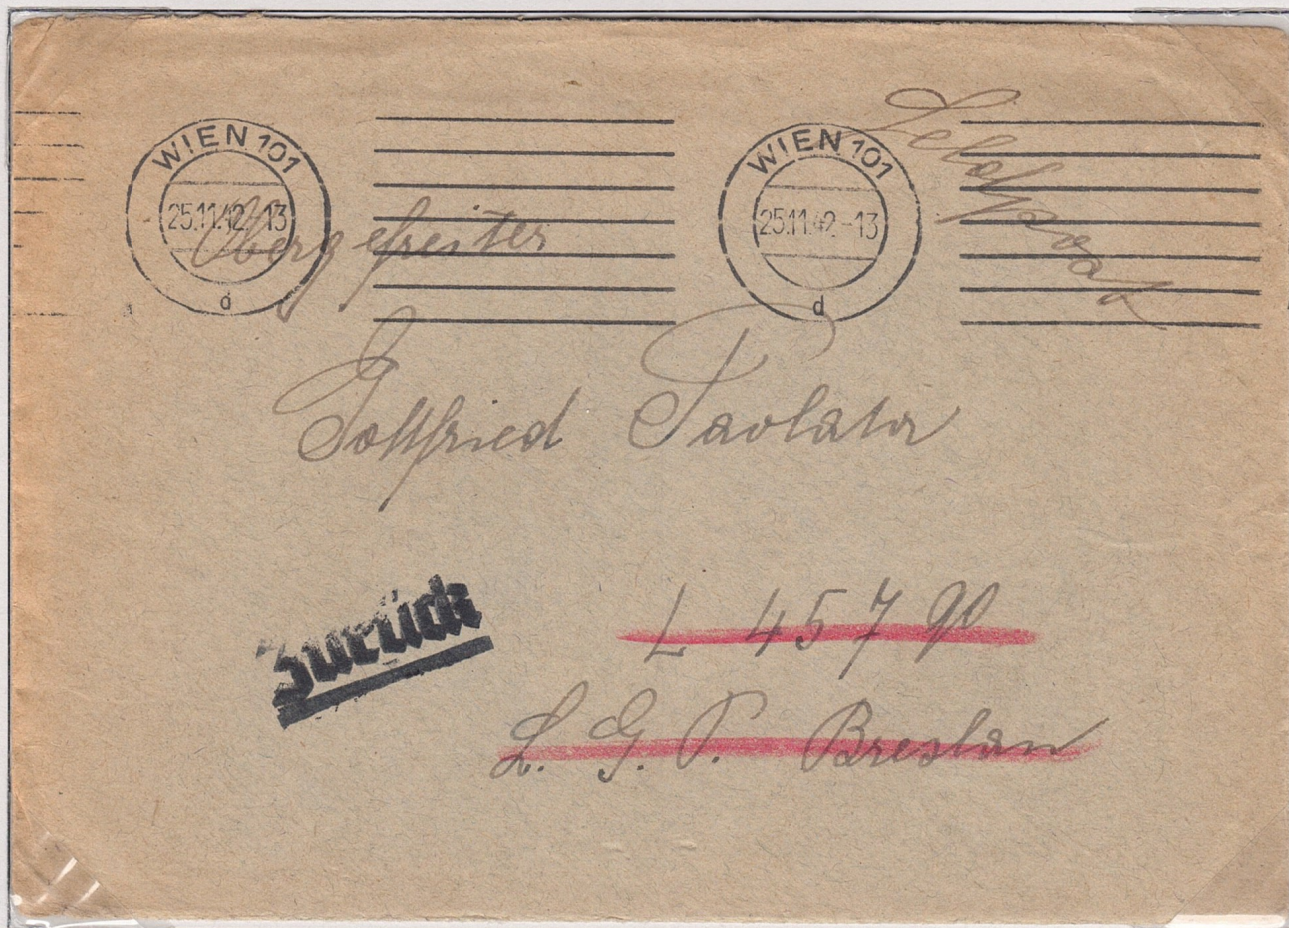 WIEN 101
25.11.42.-13
d
WIEN 101
25.11.42.-13
d
Feldpost
Obergefreiter
Gottfried Pavlata
Zurück
L 45790
L. G. P. Breslau